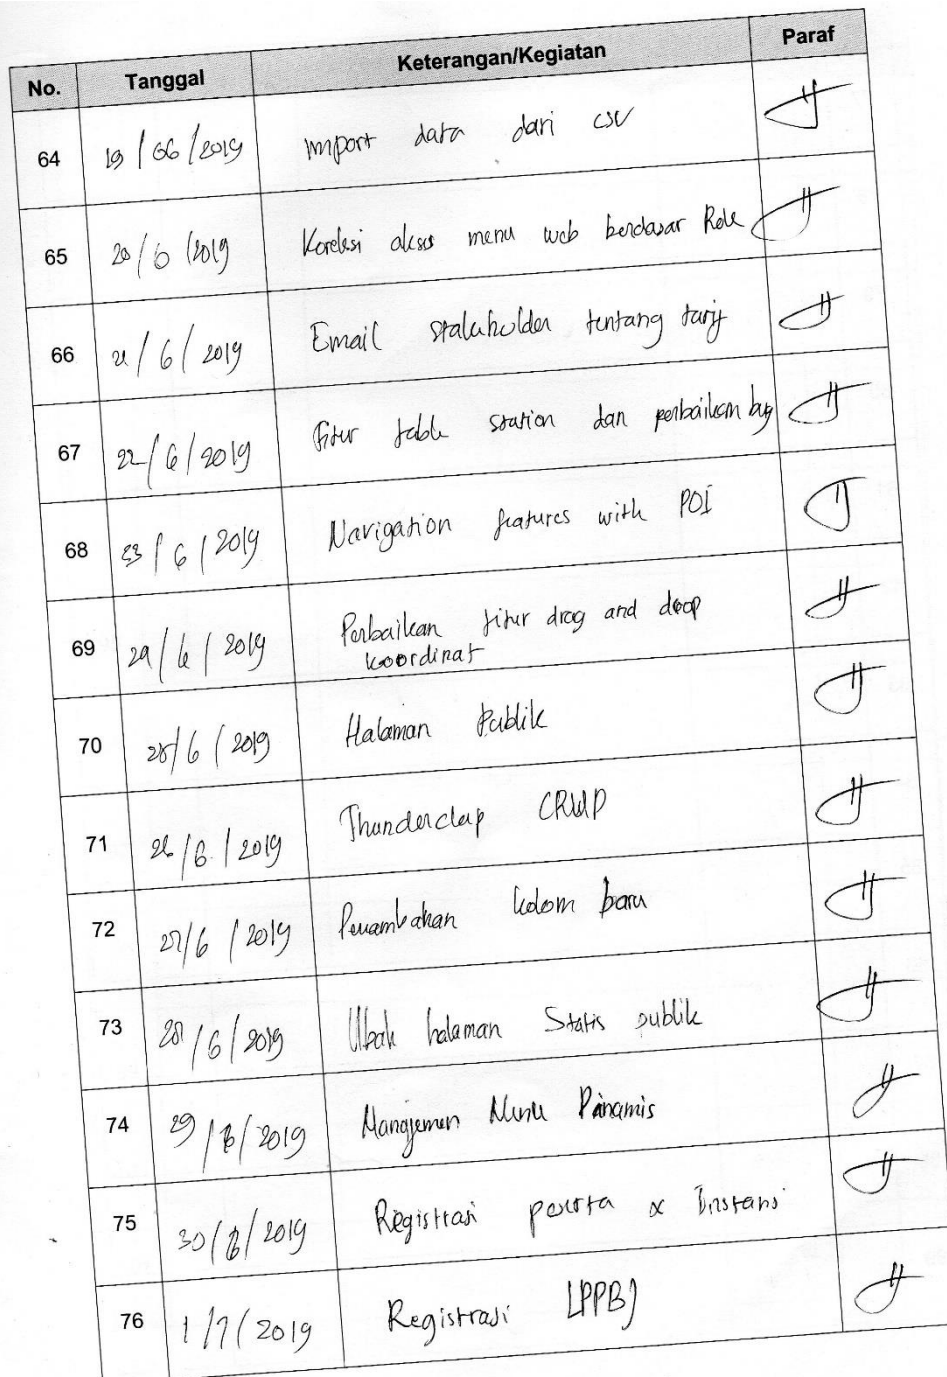 No. Tanggal Keterangan/Kegiatan Paraf
64 19/06/2019 Import data dari csv
65 20/6/2019 Korelasi akses menu web berdasar Role
66 21/6/2019 Email stakeholder tentang tarif
67 22/6/2019 Fitur table station dan perbaikan bug
68 23/6/2019 Navigation features with POI
69 24/6/2019 Perbaikan fitur drag and drop
koordinat
70 25/6/2019 Halaman Publik
71 26/6/2019 Thunderclap CRUD
72 27/6/2019 Penambahan kolom baru
73 28/6/2019 Ubah halaman Statis publik
74 29/6/2019 Manajemen Menu Dinamis
75 30/6/2019 Registrasi peserta & Instansi
76 1/7/2019 Registrasi LPPBJ